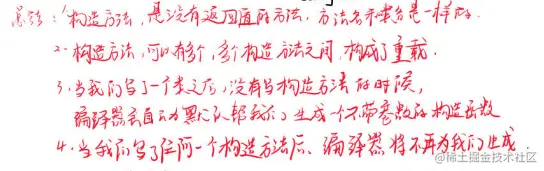 总结：1. 构造方法，是没有返回值的方法，方法名和类名是一样的.
2. 构造方法，可以有多个，多个构造方法之间，构成了重载.
3. 当我们写了一个类之后，没有写构造方法的时候，
编译器会自动为默认帮我们生成一个不带参数的构造函数
4. 当我们写了任何一个构造方法后、编译器将不再为我们生成.
@稀土掘金技术社区